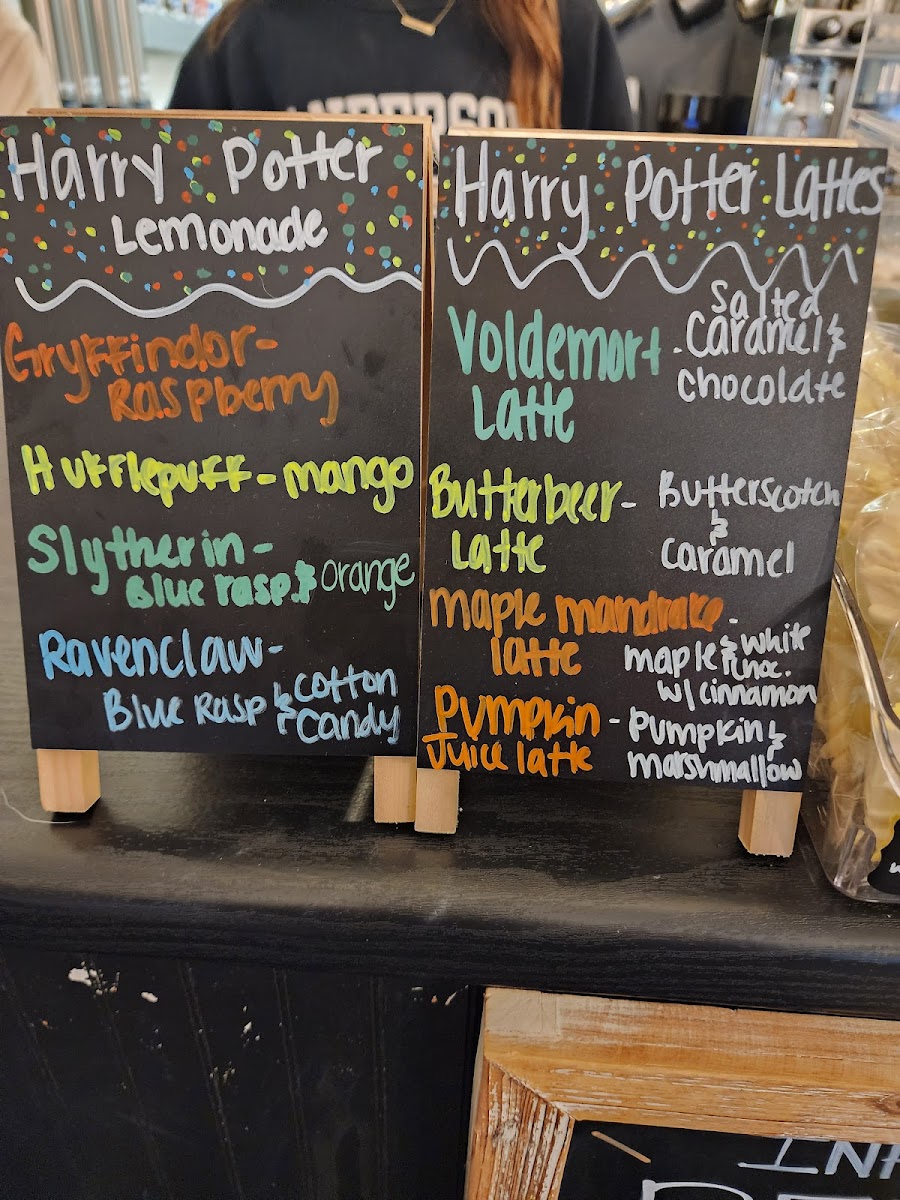 Harry Potter
Lemonade
Gryffindor-
Raspberry
Hufflepuff - mango
Slytherin -
Blue rasp. & orange
Ravenclaw -
Blue Rasp & cotton
candy
Harry Potter Lattes
Voldemort - Salted
Caramel &
Latte chocolate
Butterbeer - Butterscotch
&
Latte Caramel
maple mandrake -
latte maple & white
choc.
w/ cinnamon
Pumpkin - pumpkin &
Juice latte marshmallow